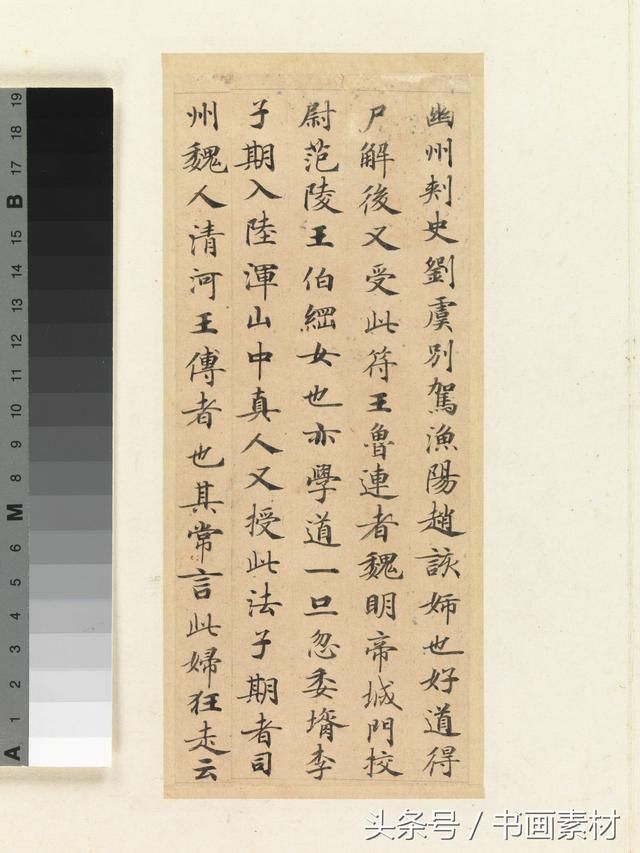 幽州刾史劉虞別駕漁陽趙該姉也好道得
尸解後又受此符王魯連者魏明帝城門挍
尉范陵王伯綱女也亦學道一旦忽委壻李
子期入陸渾山中真人又授此法子期者司
州魏人清河王傅者也其常言此婦狂走云
A 1 2 3 4 5 6 M 8 9 10 11 12 13 14 15 B 17 18 19
头条号 / 书画素材